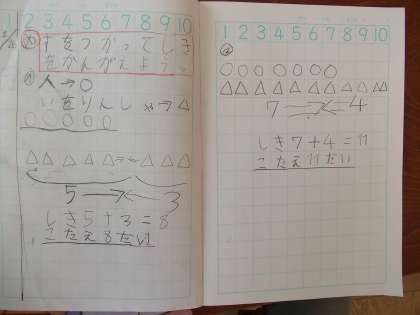 1 2 3 4 5 6 7 8 9 10
ずをつかってしき
をかんがえよう。
人→○
いちりんしゃ→△
5 3
しき5+3=8
こたえ8だい
1 2 3 4 5 6 7 8 9 10
7 4
しき7+4=11
こたえ11だい